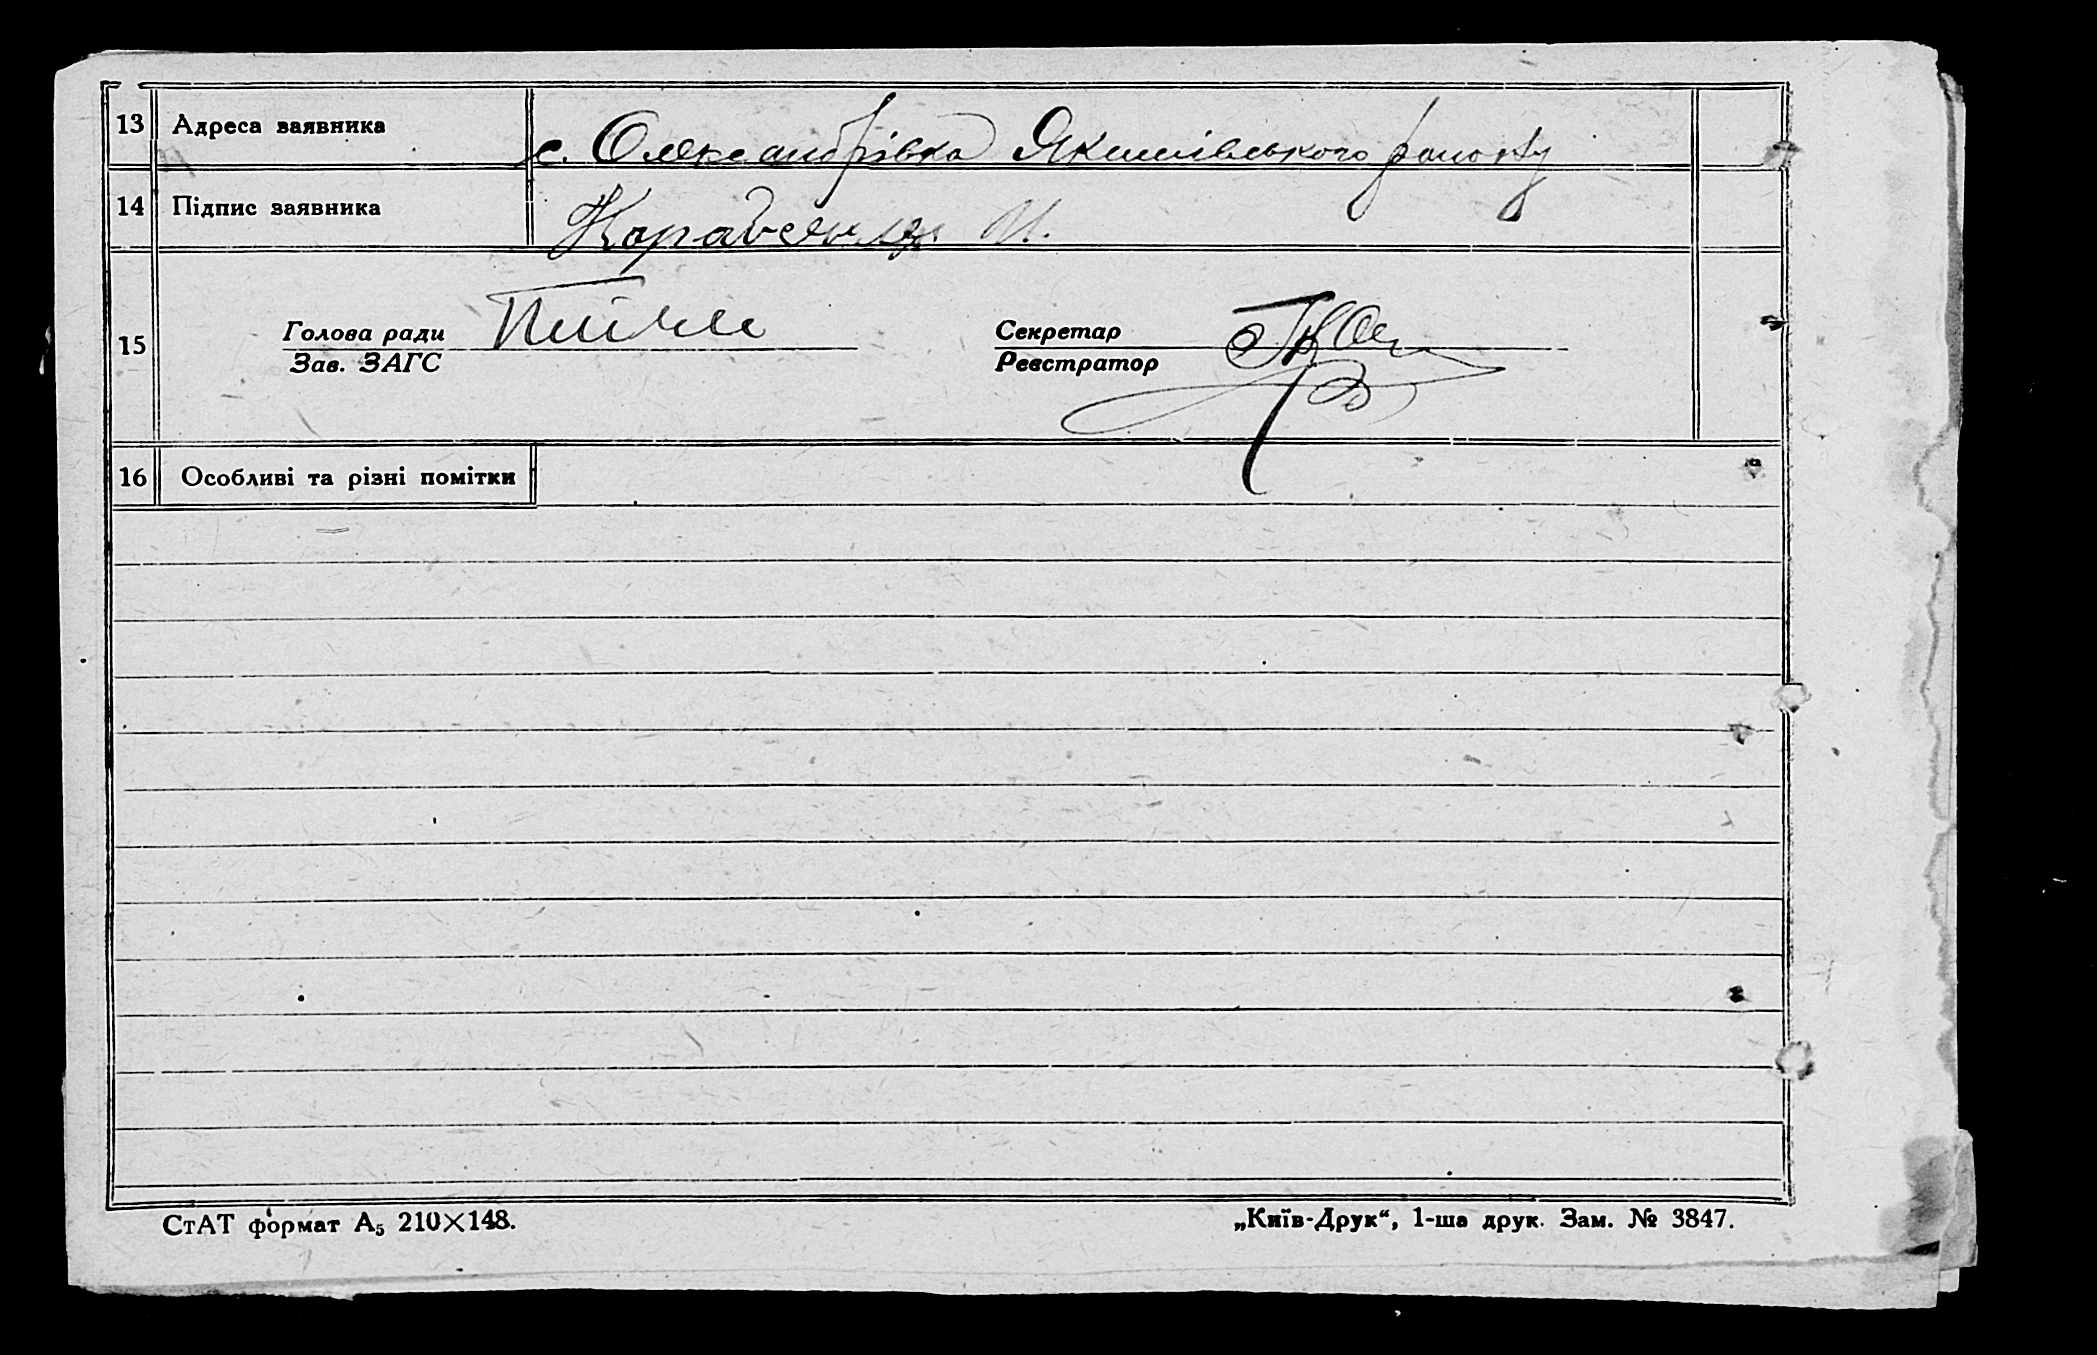 13 Адреса заявника с. Олександрівка Якимівського району
14 Підпис заявника И.
15 Голова ради Секретар
Зав. ЗАГС Реєстратор
16 Особливі та різні помітки
СтАТ формат А5 210×148. „Київ-Друк“, 1-ша друк. Зам. № 3847.